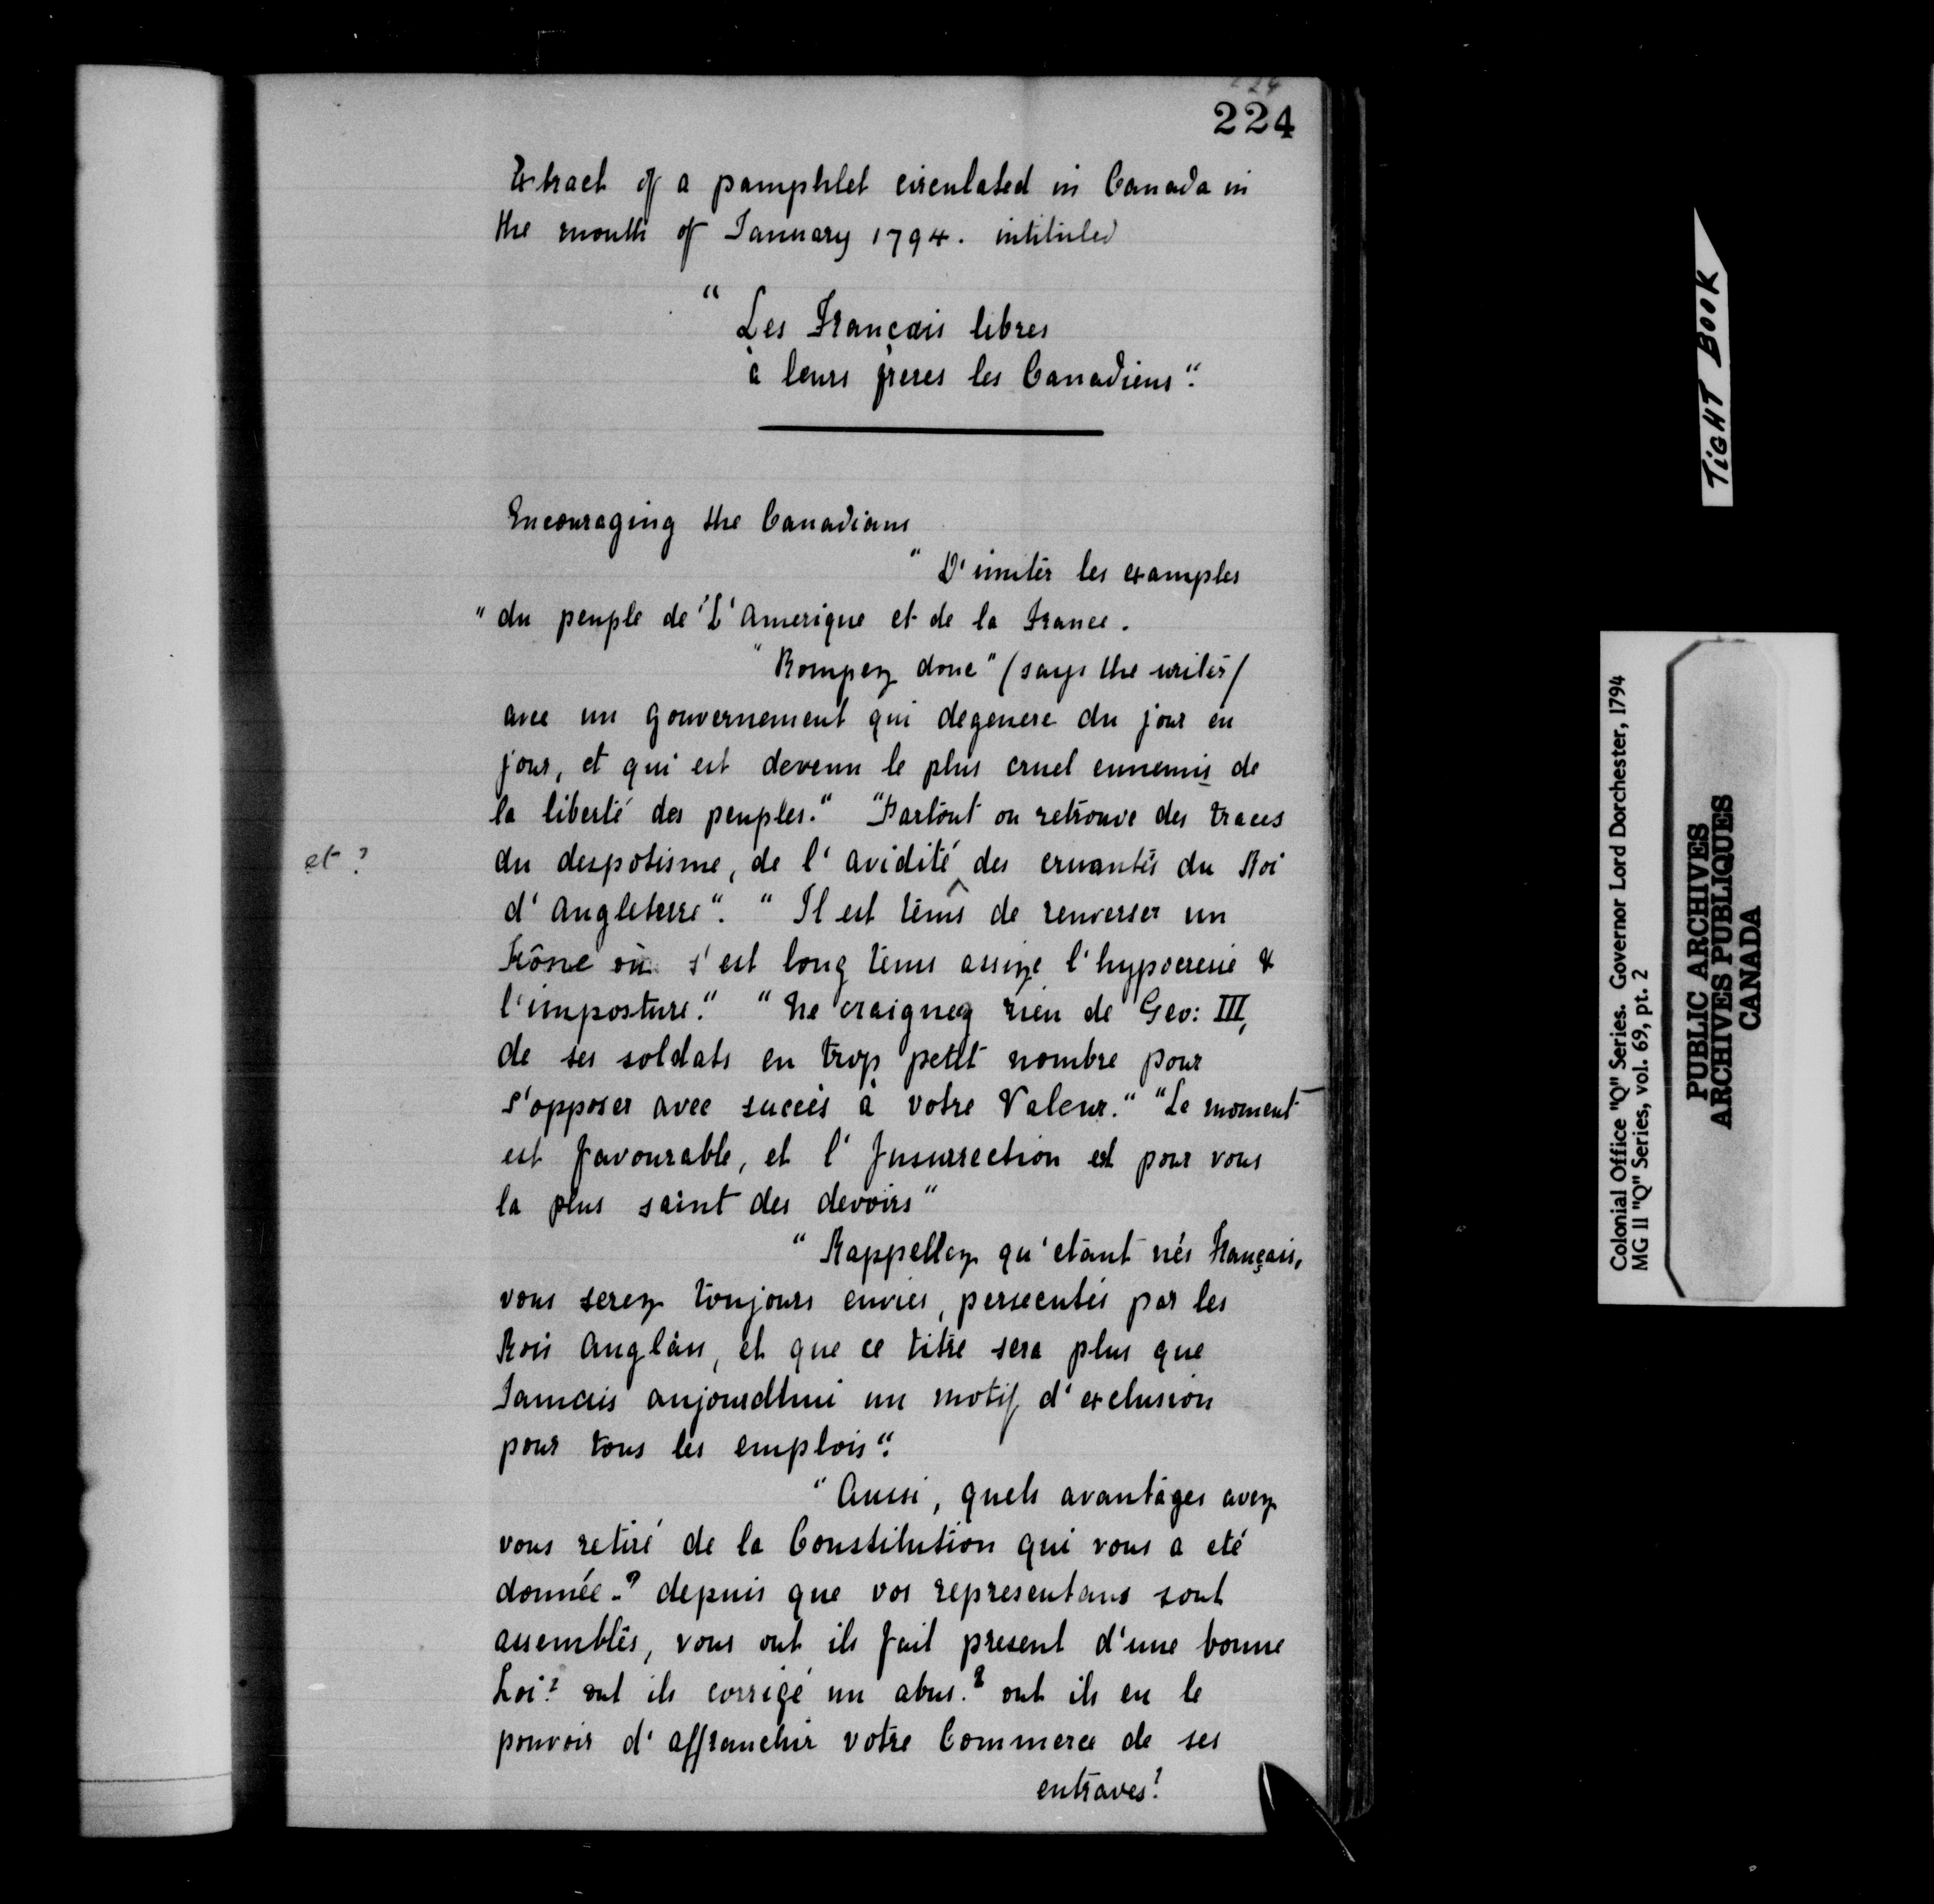 224
224
Extract of a pamphlet circulated in Canada in
the month of January 1794. intituled
"Les Français libres
à leurs freres les Canadiens".
Encouraging the Canadians
"D'imiter les examples
"du peuple de L'Amerique et de la France.
"Rompez donc" (says the writer)
avec un gouvernement qui degenere du jour en
jour, et qui est devenu le plus cruel ennemis de
la liberté des peuples." "Partout on retrouve des traces
et?
du despotisme, de l'avidité ^ des cruautés du Roi
d'Angleterre". "Il est tems de renverser un
Trône où s'est long tems assize l'hypocresie &
l'imposture." "Ne craignez rien de Geo: III,
de ses soldats en trop petit nombre pour
s'opposer avec succès à votre Valeur." "Le moment
est favourable, et l'Insurrection est pour vous
la plus saint des devoirs"
"Rappellez qu'etant nés Français,
vous serez toujours enviés, persecutés par les
Rois Anglais, et que ce titre sera plus que
Jamais aujourdhui un motif d'exclusion
pour tous les emplois".
"Aussi, quels avantages avez
vous retiré de la Constitution qui vous a eté
donnée-? depuis que vos representans sont
assemblés, vous ont ils fait present d'une bonne
Loi? ont ils corrigé un abus.? ont ils eu le
pouvoir d'affranchir votre Commerce de ses
entraves?
TIGHT BOOK
Colonial Office "Q" Series. Governor Lord Dorchester, 1794
MG 11 "Q" Series, vol. 69, pt. 2
PUBLIC ARCHIVES
ARCHIVES PUBLIQUES
CANADA